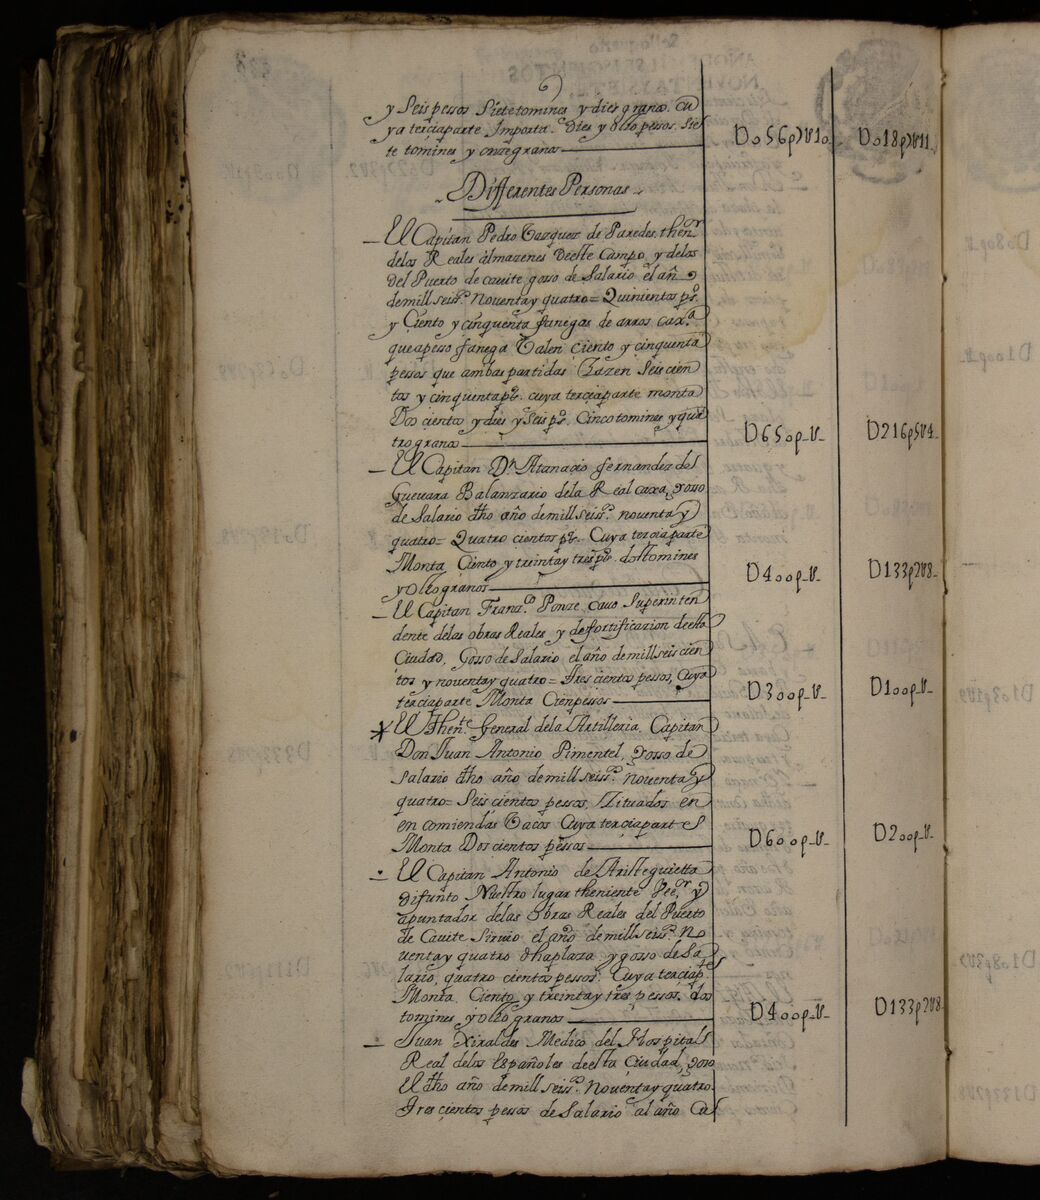 y Seis pessos Siete tomines y dies granos. cu
ya terciaparte Importa. Dies y ocho pessos. Sie
te tomines y onze granos
Do56p7U10.
Do18p7U11.
Differentes Personas
El Capitan Pedro Vazquez de Paredes. then.or
delos Reales almazenes deeste Campo, y delos
del Puerto de cauite gosso de Salario el año
demill seis.s Noventa y quatro = Quinientos p.s
y Ciento y cinquenta fanegas de arros cax.a
que apesso fanega Valen ciento y cinquenta
pessos que ambas partidas hazen Seis cien
tos y cinquenta p.s cuya terciaparte monta
Dos cientos y dies y Seis p.s Cinco tomines y qua
tro granos
D650p_U_
D216p5U4_
El Capitan D.n Atanacio fernandez de
Guevara Balanzario dela Real caxa, gosso
de Salario dho año demill seis.s noventa y
quatro = Quatro cientos p.s Cuya terciaparte
Monta Ciento y treinta y tres p.s dos tomines
y ocho granos
D400p_U_
D133p2U8_
El Capitan Franz.co Ponze cauo Superinten
dente delas obras Reales y defortificazion deesta
Ciudad, Gosso de Salario el año demill seis cien
tos y noventa y quatro = Tres cientos pessos, Cuya
terciaparte Monta Cien pessos
D300p_U_
D100p_U_
El Then.te General dela Artilleria, Capitan
Don Juan Antonio Pimentel, gosso de
Salario dho año demill seis.s Noventa y
quatro = Seis cientos pessos, Zituados en
en comiendas Vacos Cuya terciapart e
Monta Dos cientos pessos
D600p_U_
D200p_U_
El Capitan Antonio de Aristeguietta
difunto Nuestro lugar theniente Vee.or y
apuntador delas Obras Reales del Puerto
de Cauite Siruio el año demill seis.s No
uenta y quatro dha plaza y gosso de Sa
lario, quatro cientos pessos. Cuya terciap.tes
Monta, Ciento y treinta y tres pessos, dos
tomines y ocho granos
D400p_U_
D133p2U8_
Juan Xiraldes Medico del Hospital
Real delos Españoles deesta Ciudad, goso
El dho año demill seis.s Noventa y quatro
Tres cientos pessos de Salario al año Cu